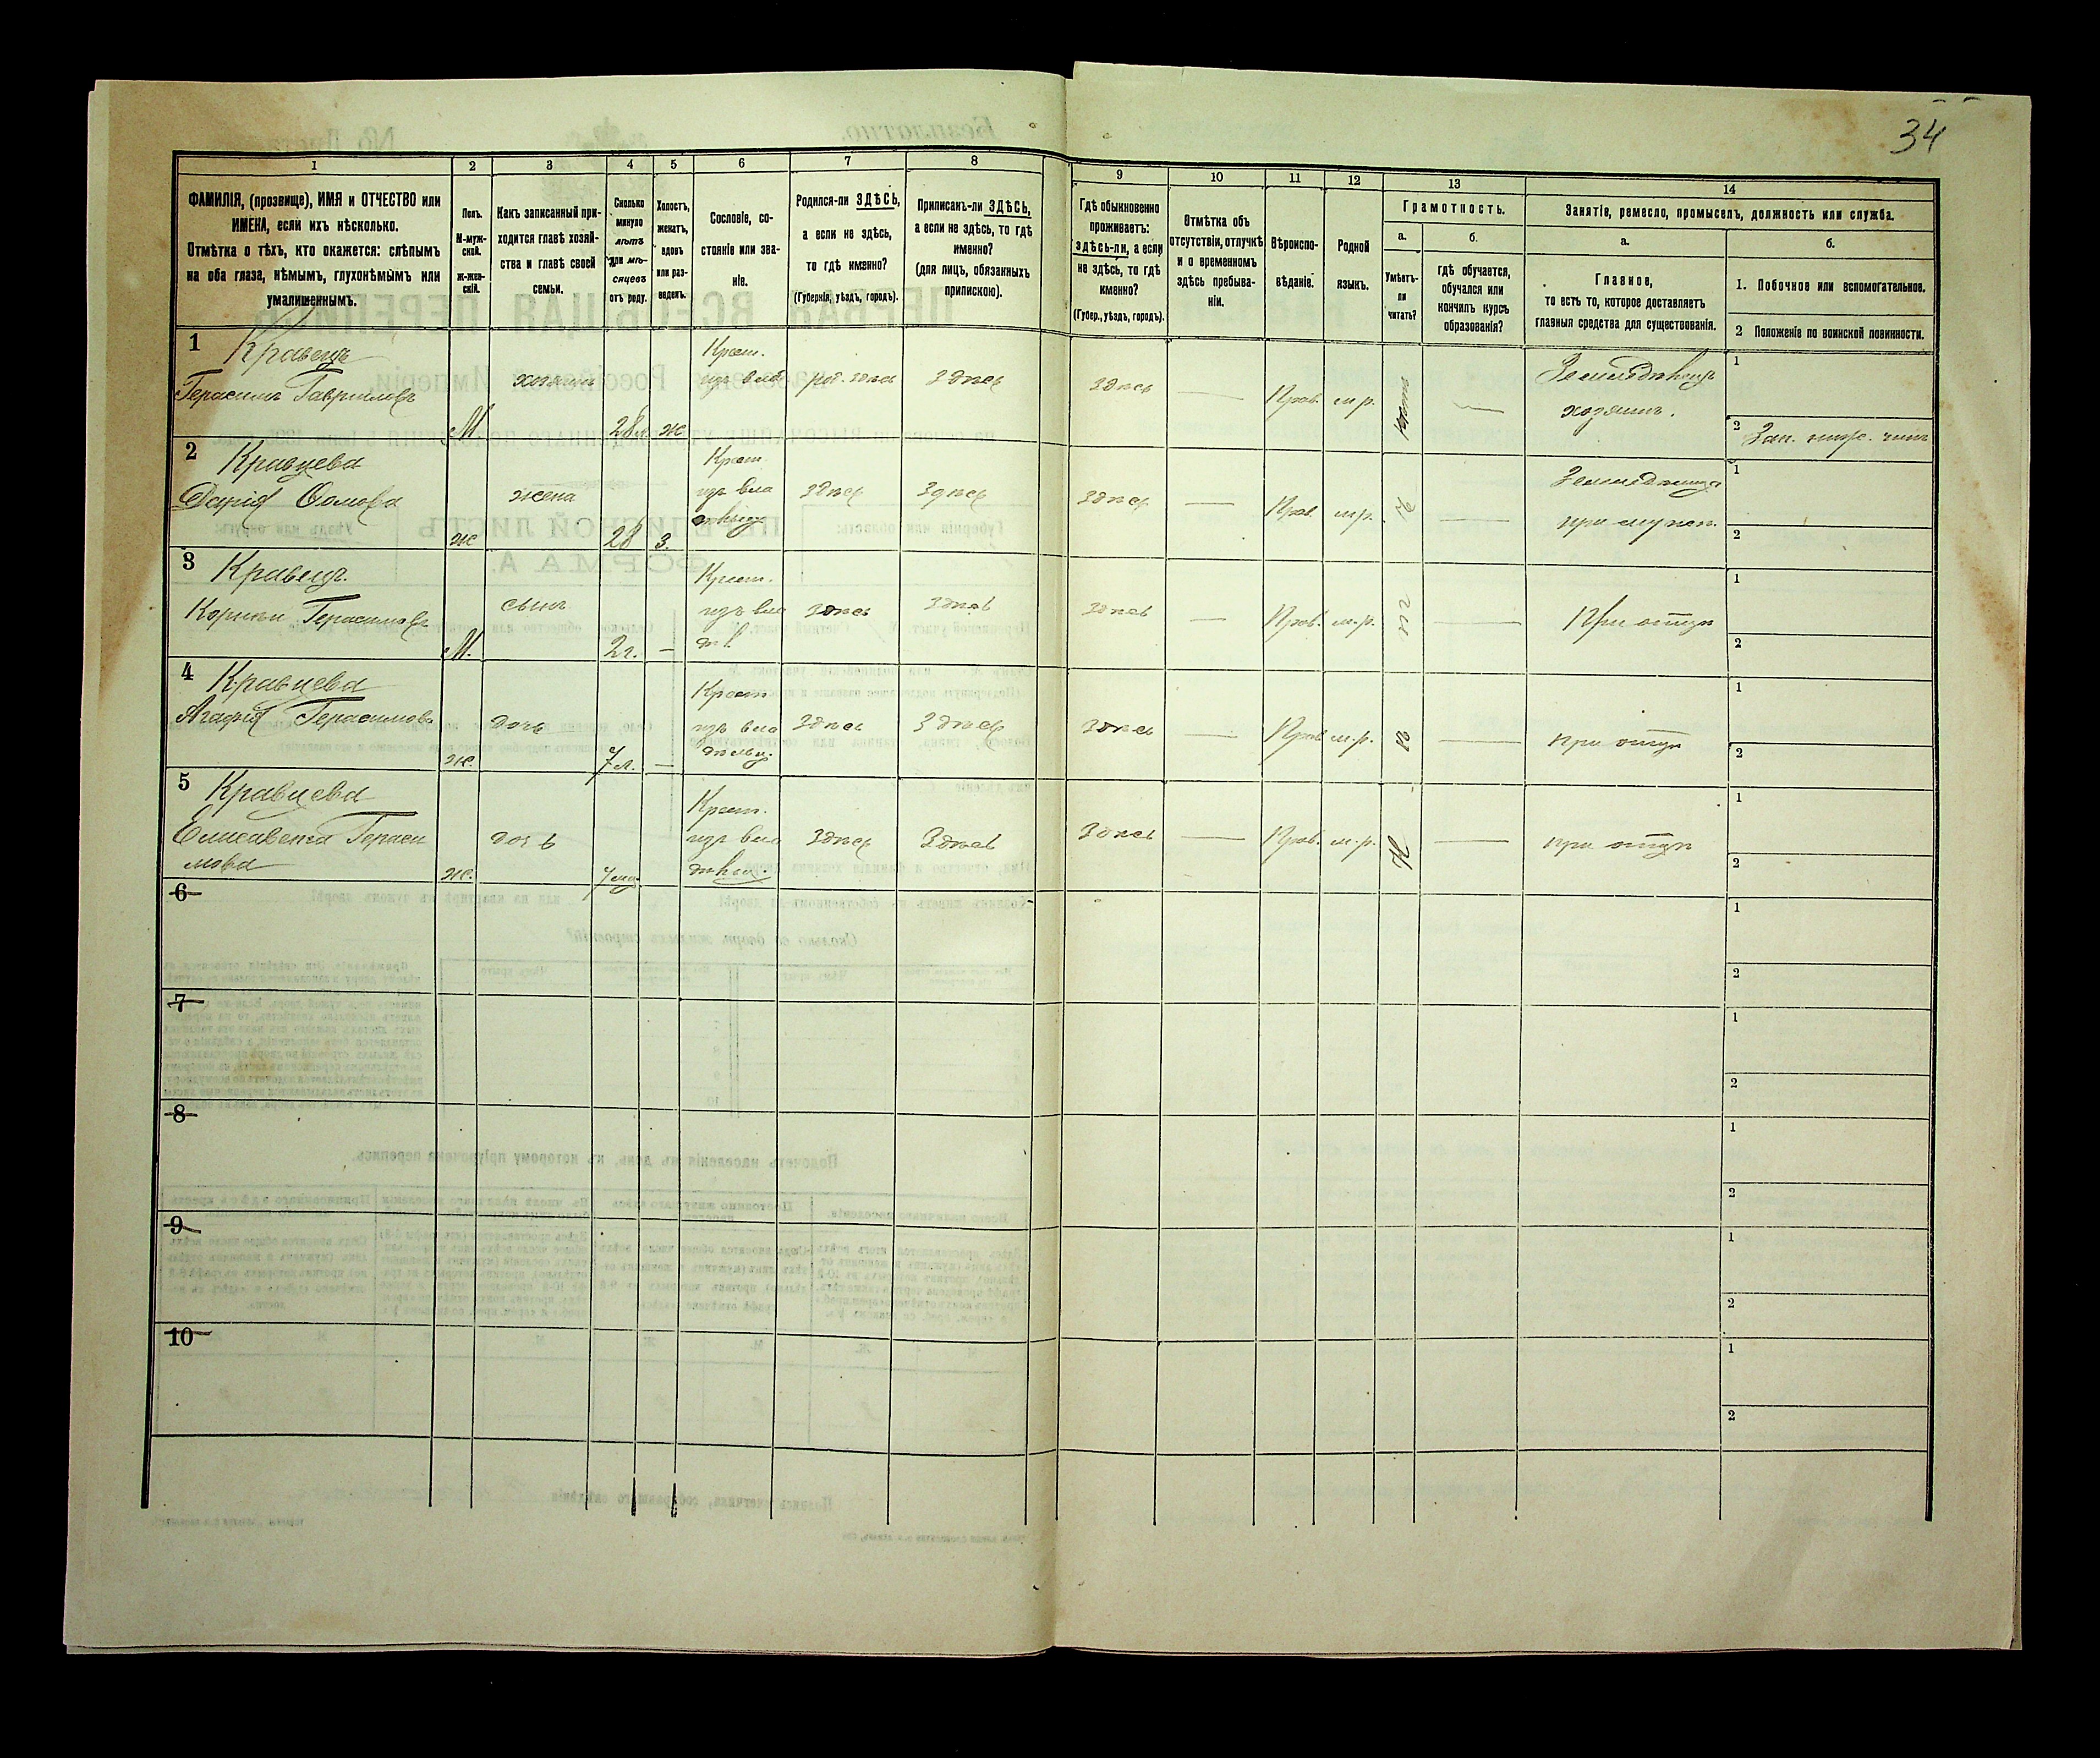 34
1
2
3
4
5
6
7
8
9
10
11
12
13
14
ФАМИЛІЯ, (прозвище), ИМЯ и ОТЧЕСТВО или
ИМЕНА, если ихъ нѣсколько.
Отмѣтка о тѣхъ, кто окажется: слѣпымъ
на оба глаза, нѣмымъ, глухонѣмымъ или
умалишеннымъ.
Полъ.
М-муж-
ской.
ж-жен-
скій.
Какъ записанный при-
ходится главѣ хозяй-
ства и главѣ своей
семьи.
Сколько
минуло
лѣтъ
или мѣ-
сяцевъ
отъ роду.
Холостъ,
женатъ,
вдовъ
или раз-
веденъ.
Сословіе, со-
стояніе или зва-
ніе.
Родился-ли ЗДѢСЬ,
а если не здѣсь,
то гдѣ именно?
(Губернія, уѣздъ, городъ).
Приписанъ-ли ЗДѢСЬ,
а если не здѣсь, то гдѣ
именно?
(для лицъ, обязанныхъ
припискою).
Гдѣ обыкновенно
проживаетъ:
здѣсь-ли, а если
не здѣсь, то гдѣ
именно?
(Губер., уѣздъ, городъ).
Отмѣтка объ
отсутствіи, отлучкѣ
и о временномъ
здѣсь пребыва-
ніи.
Вѣроиспо-
вѣданіе.
Родной
языкъ.
Грамотность.
а.
Умѣетъ-
ли
читать?
б.
гдѣ обучается,
обучался или
кончилъ курсъ
образованія?
Занятіе, ремесло, промыселъ, должность или служба.
а.
Главное,
то есть то, которое доставляетъ
главныя средства для существованія.
б.
1. Побочное или вспомогательное.
2 Положеніе по воинской повинности.
1
Кравецъ
Герасимъ Гавриловъ
М
хозяинъ
28л
ж
Крест.
изъ влад
род. здѣсь
Здѣсь
Здѣсь
—
Прав.
м.р.
—
Земледѣлецъ
хозяинъ.
1
2 Зап. ниж. чинъ
2
Кравцева
Дарія
ж
жена
28
З.
Крест.
изъ вла
дѣльц
Здѣсь
Здѣсь
Здѣсь
—
Прав.
м.р.
н
—
при мужѣ.
1
2
3
Кравецъ.
Корнѣй Герасимовъ
М.
сынъ
2г.
—
Крест.
изъ вла
дѣл.
Здѣсь
Здѣсь
Здѣсь
—
Прав.
м.р.
—
При отцѣ
1
2
4
Кравцева
Агафія Герасимова
ж.
дочь
7л.
—
Крест.
изъ вла
дѣльц.
Здѣсь
Здѣсь
Здѣсь
—
Прав
м.р.
н
—
при отцѣ
1
2
5
Кравцева
Елисавета Гераси
мова
ж.
дочь
Крест.
изъ вла
дѣльц.
Здѣсь
Здѣсь
Здѣсь
—
Прав.
м.р.
н
—
при отцѣ
1
2
6
1
2
7
1
2
8
1
2
9
1
2
10
1
2